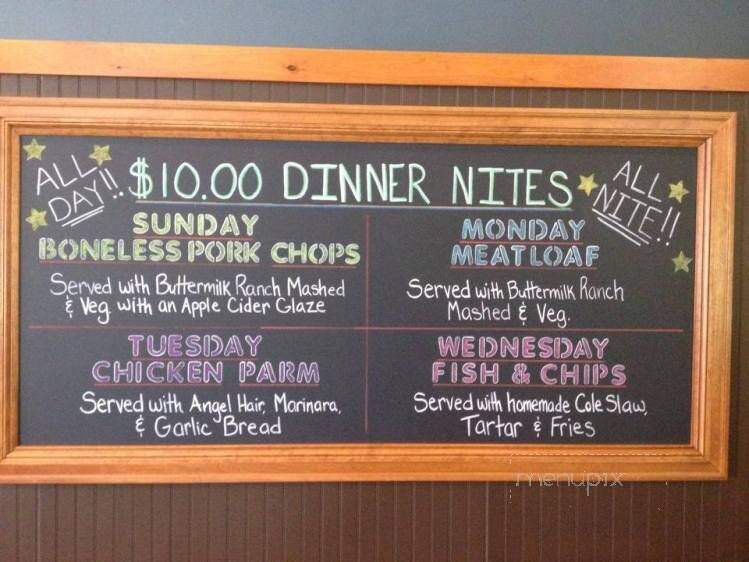 ALL DAY!!
$10.00 DINNER NITES
ALL NITE!!
SUNDAY
BONELESS PORK CHOPS
Served with Buttermilk Ranch Mashed
& Veg. with an Apple Cider Glaze
MONDAY
MEATLOAF
Served with Buttermilk Ranch
Mashed & Veg.
TUESDAY
CHICKEN PARM
Served with Angel Hair, Marinara,
& Garlic Bread
WEDNESDAY
FISH & CHIPS
Served with homemade Cole Slaw,
Tartar & Fries
menupix